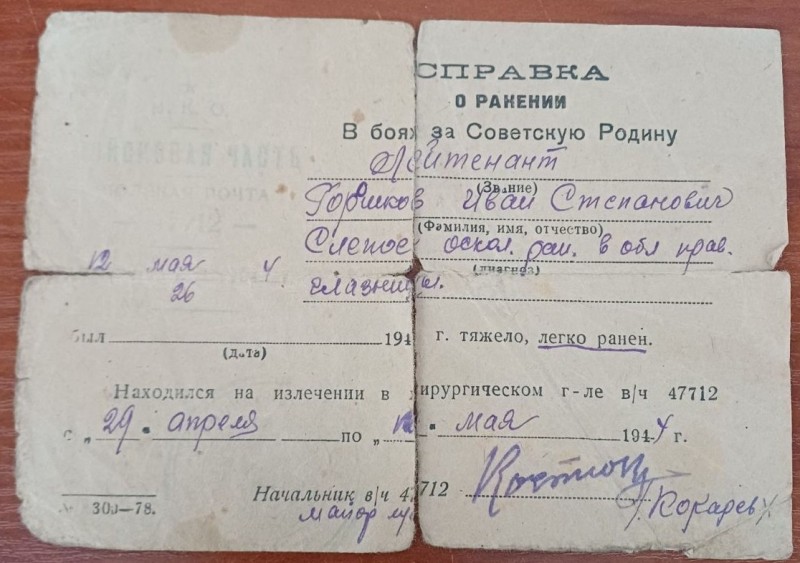 СПРАВКА
О РАНЕНИИ
В боях за Советскую Родину
Лейтенант
(Звание)
Горшков Иван Степанович
(Фамилия, имя, отчество)
Слепое оскол. ран. в обл прав.
12 мая 4
(диагноз)
26
глазницы.
был 194 г. тяжело, легко ранен.
(дата)
Находился на излечении в хирургическом г-ле в/ч 47712
с „29" апреля по „12" мая 1944 г.
Начальник в/ч 47712
300—78.
майор